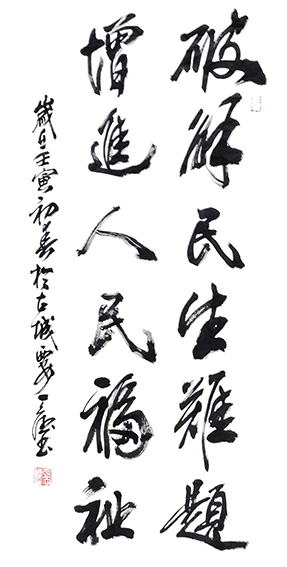 破解民生難題
增進人民福祉
歲在壬寅初春於古城